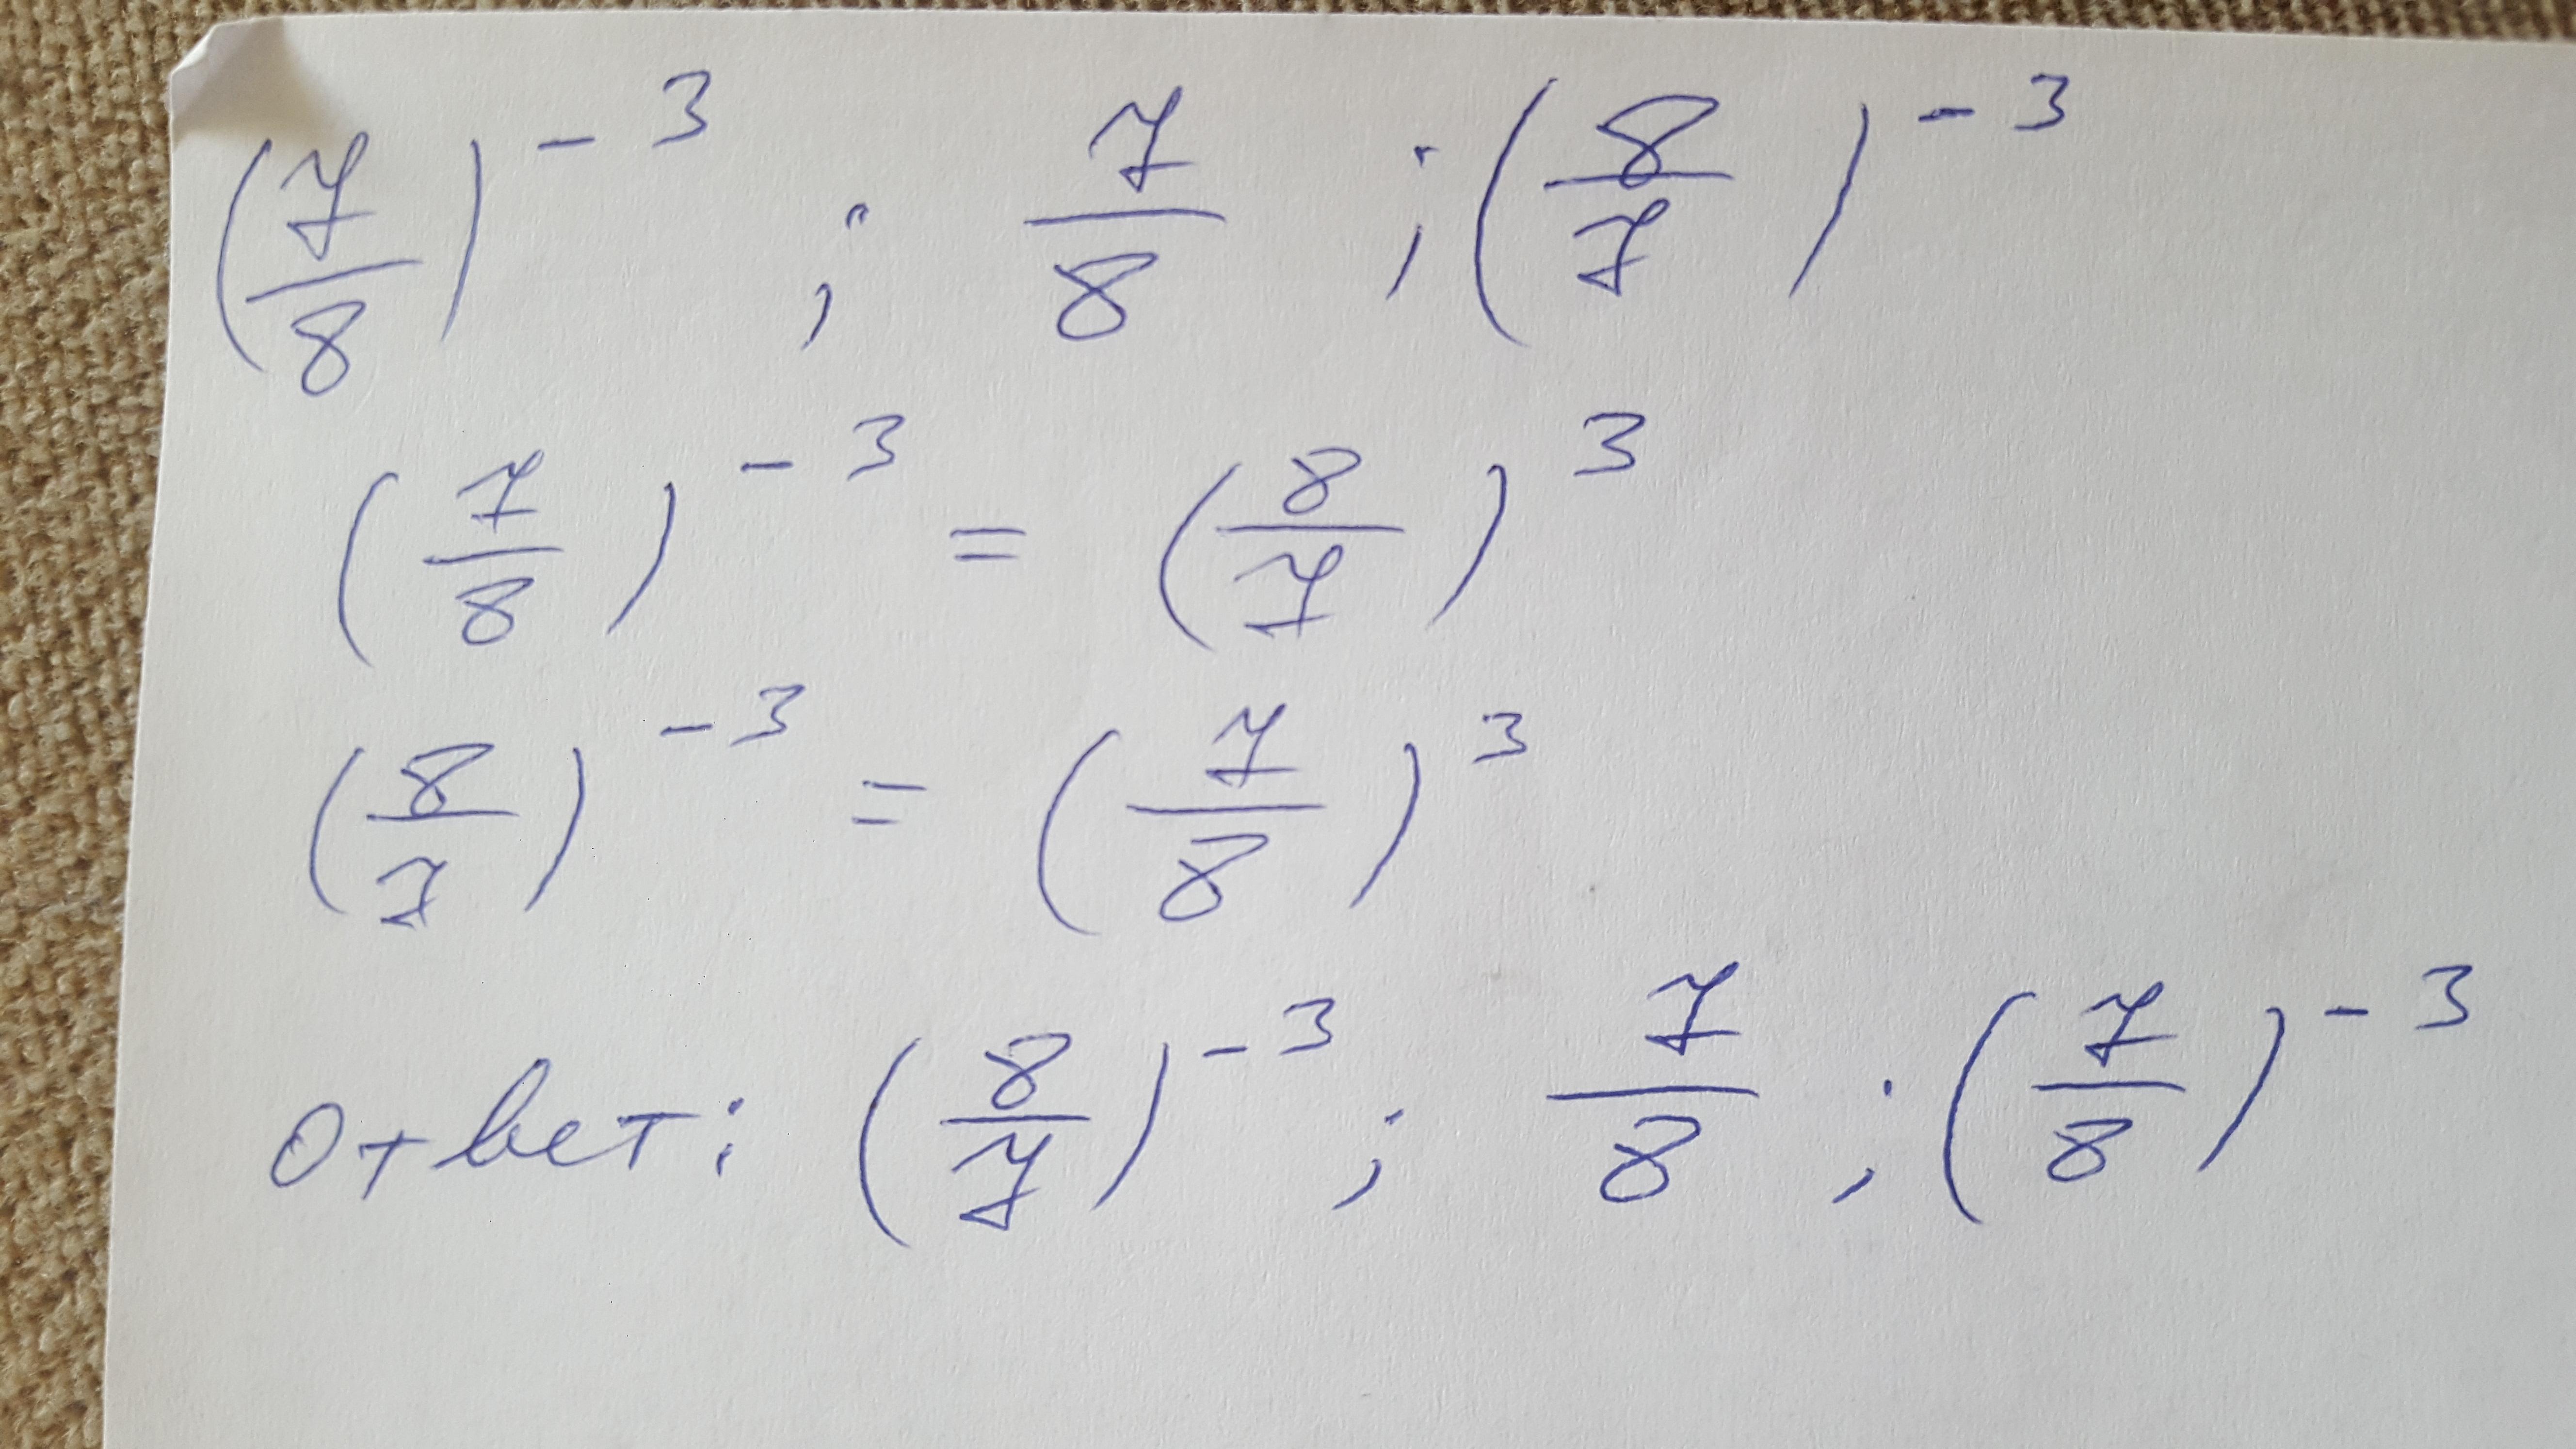 (7/8)^-3 ; 7/8 ; (8/7)^-3
(7/8)^-3 = (8/7)^3
(8/7)^-3 = (7/8)^3
Ответ: (8/7)^-3 ; 7/8 ; (7/8)^-3